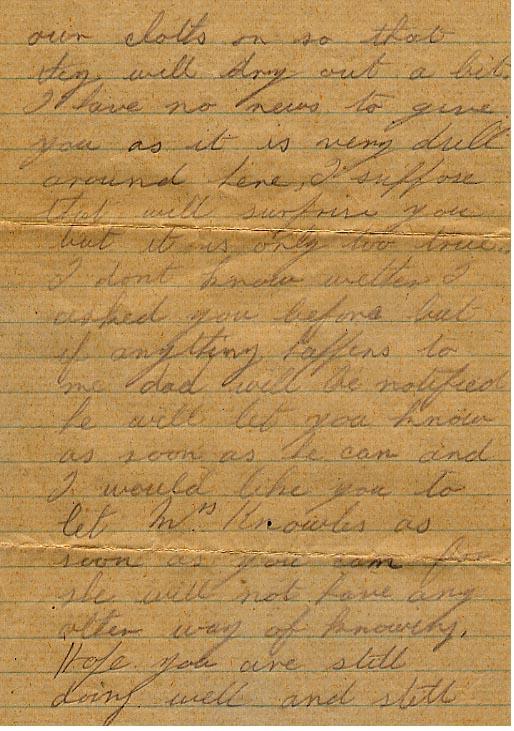 our cloths on so that
they will dry out a bit.
I have no news to give
you as it is very dull
around here, I suppose
that will surprise you
but it is only too true.
I dont know wether I
asked you before but
if anything happens to
me dad will be notified
he will let you know
as soon as he can and
I would like you to
let Mrs Knowles as
soon as you can for
she will not have any
other way of knowing.
Hope you are still
doing well and still